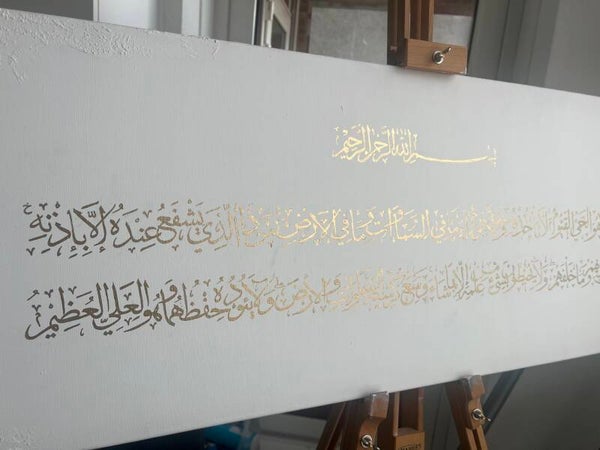 بِسْمِ اللهِ الرَّحْمٰنِ الرَّحِيْمِ
هُوَ الْحَيُّ الْقَيُّوْمُ لَا تَأْخُذُهُ سِنَةٌ وَلَا نَوْمٌ لَهُ مَا فِي السَّمَاوَاتِ وَمَا فِي الْأَرْضِ مَنْ ذَا الَّذِي يَشْفَعُ عِنْدَهُ إِلَّا بِإِذْنِهِ
خَلْفَهُمْ وَلَا يُحِيطُونَ بِشَيْءٍ مِنْ عِلْمِهِ إِلَّا بِمَا شَاءَ وَسِعَ كُرْسِيُّهُ السَّمَاوَاتِ وَالْأَرْضَ وَلَا يَئُودُهُ حِفْظُهُمَا وَهُوَ الْعَلِيُّ الْعَظِيمُ